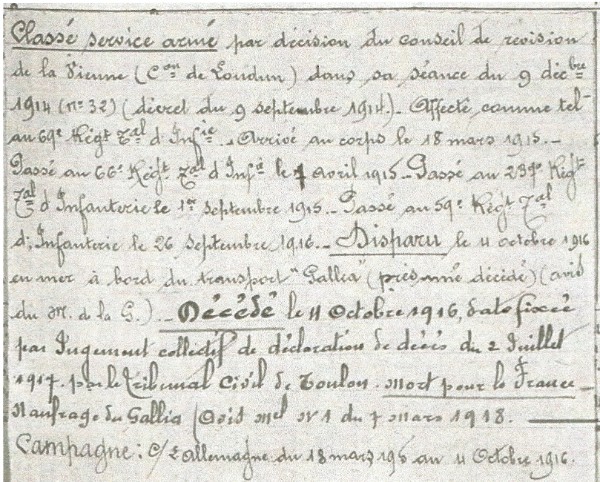 Classé service armé par décision du conseil de révision
de la Vienne (C.on de Loudun) dans sa séance du 9 décbre
1914 (n° 32) (décret du 9 septembre 1914). Affecté comme tel
au 69e Régt Tal d'Infie. Arrivé au corps le 18 mars 1915.-
Passé au 66e Régt Tal d'Infie le 7 avril 1915. Passé au 239e Régt
Tal d'Infanterie le 1er septembre 1915. Passé au 59e Régt Tal
d'Infanterie le 26 septembre 1916. Disparu le 4 octobre 1916
en mer à bord du transport "Gallia" (présumé décédé) (avis
du M. de la G.) - Décédé le 4 Octobre 1916, date fixée
par Jugement collectif de déclaration de décès du 2 Juillet
1917. par le tribunal Civil de Toulon. mort pour la France -
Naufrage du Gallia (Avis Mel N° 1 du 7 mars 1918.
Campagne: C/ L'allemagne du 18 mars 1915 au 4 Octobre 1916.